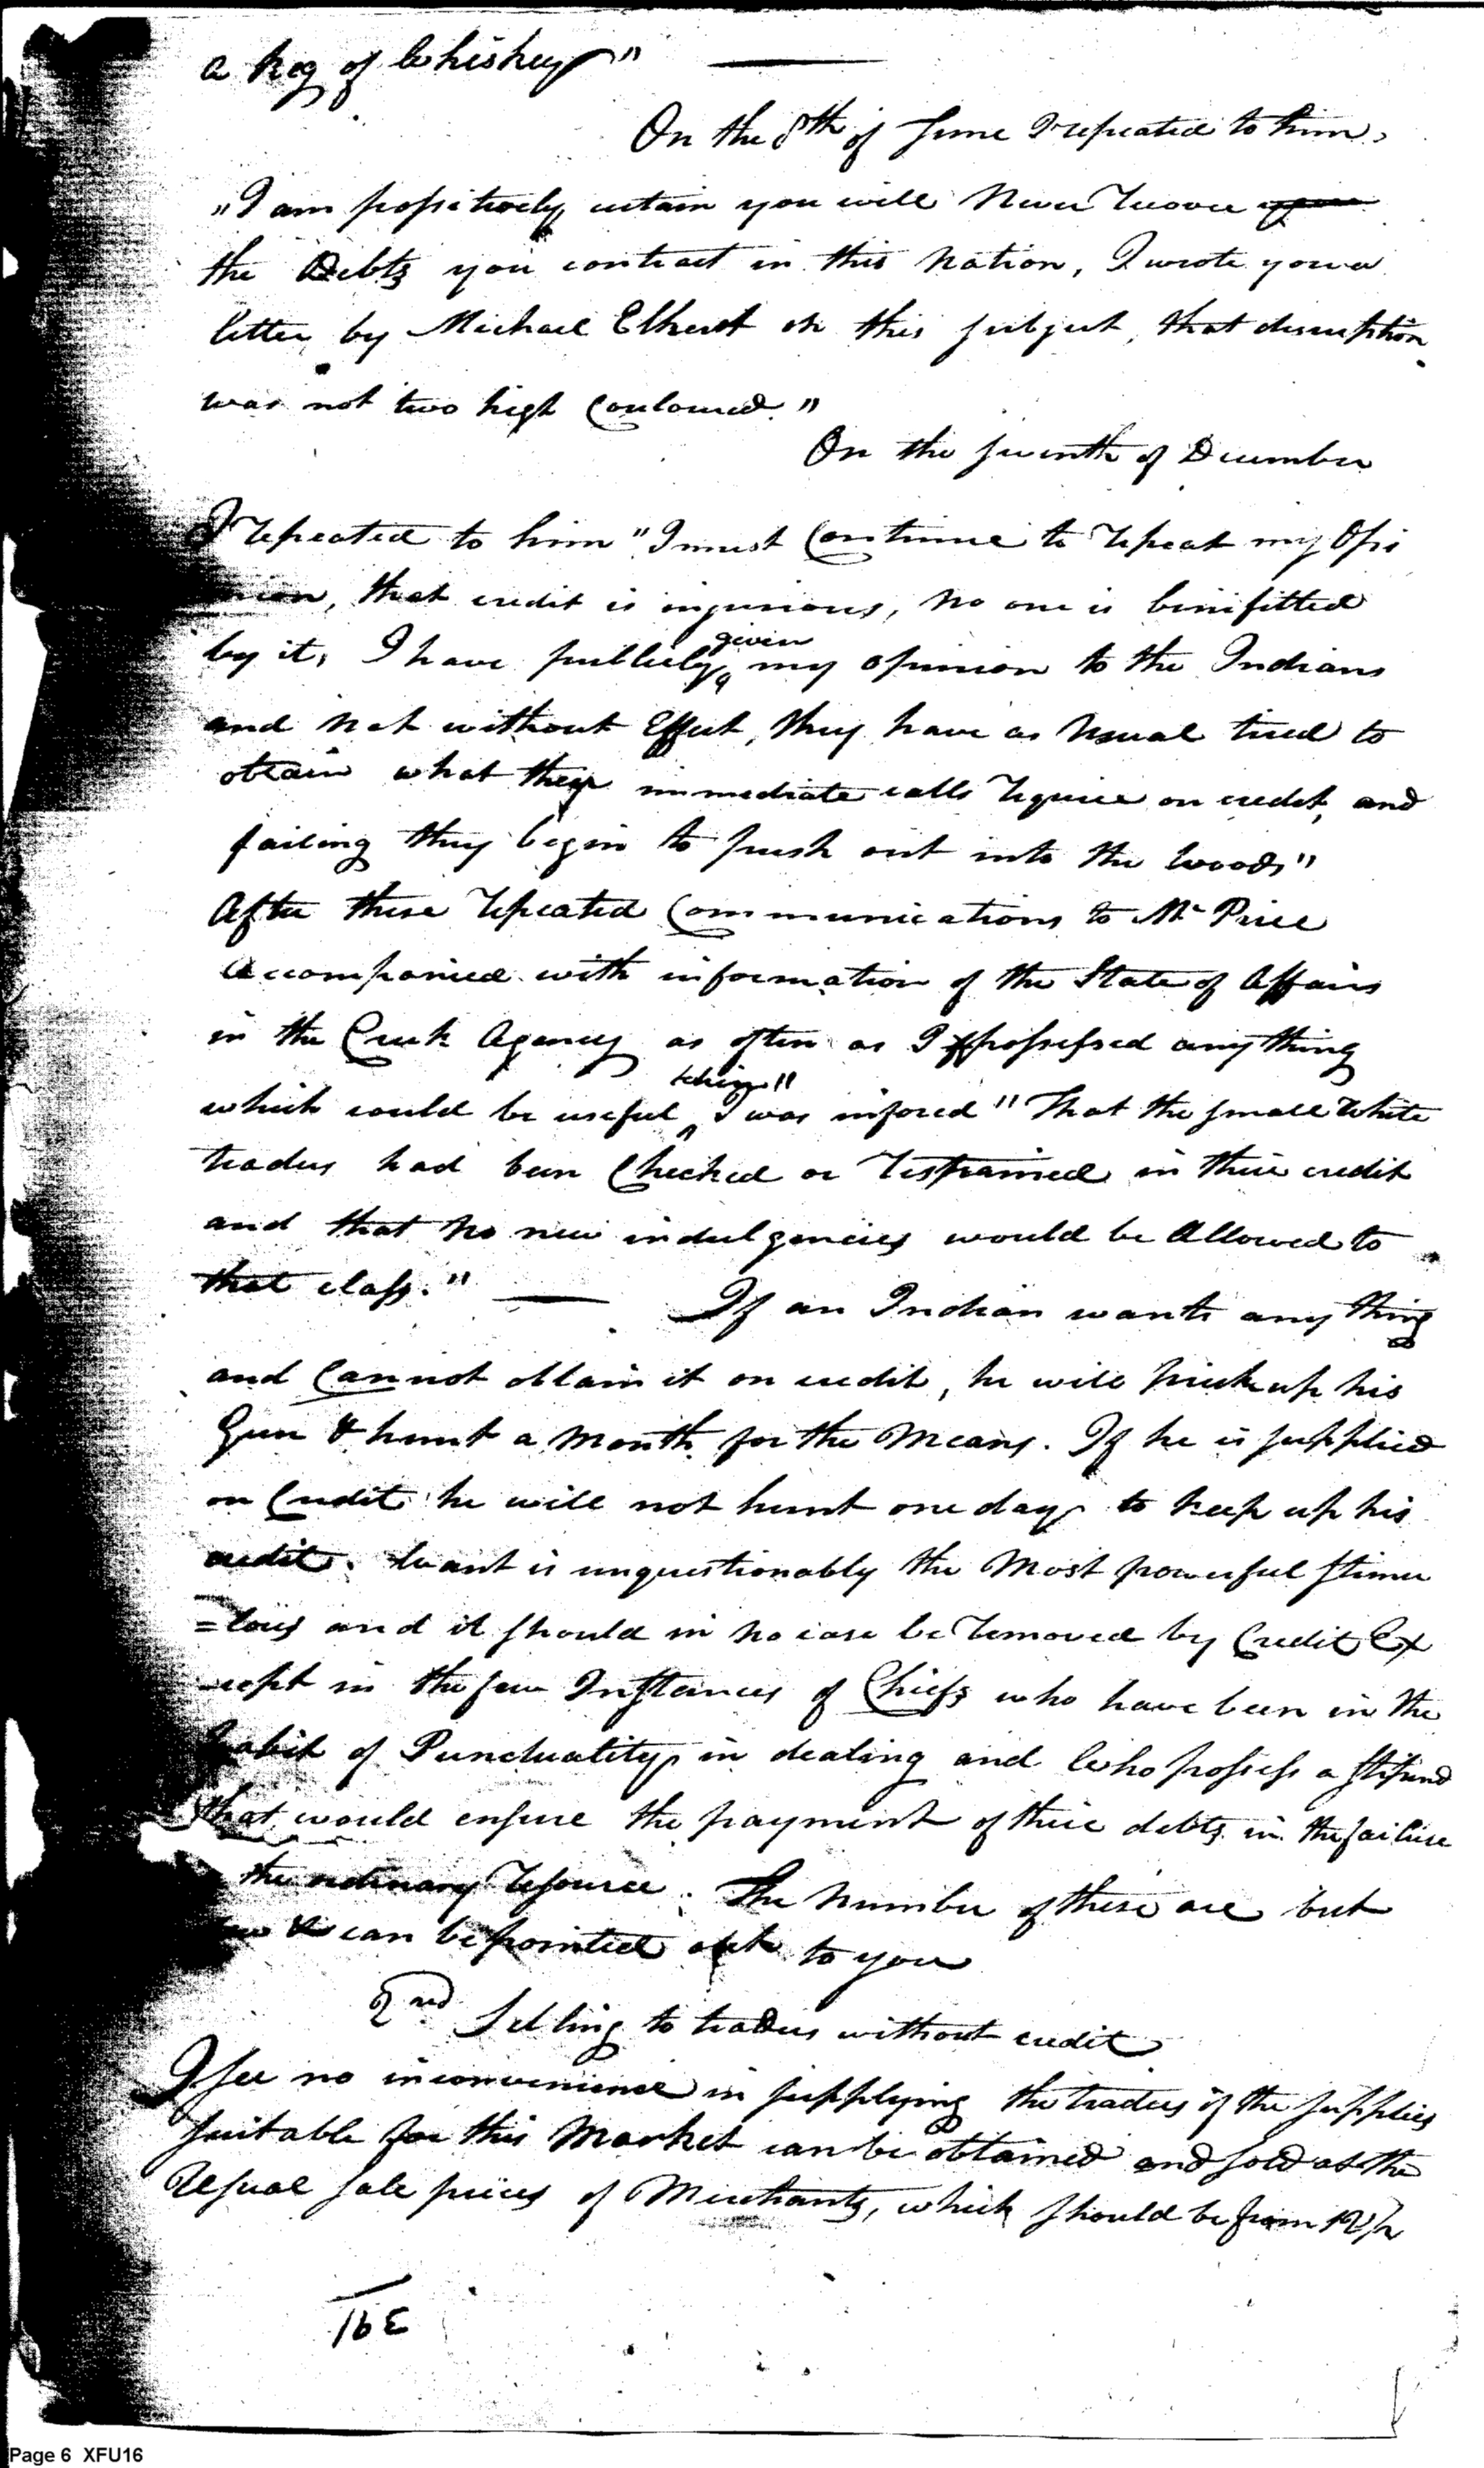 a Keg of Whiskey"
On the 8th of June I repeated to him,
"I am possitively certain you will Never recover
the Debts you contract in this Nation, I wrote you a
letter by Michael Elhert on this subject, that discription
was not two high Couloured."
On the seventh of December
I repeated to him "I must Continue to repeat my Opi
nion, that credit is injurious, no one is binifitted
by it, I have publicly given my opinion to the Indians
and not without Effect, they have as Usual tried to
obtain what their immediate calls require on credit, and
failing they begin to push out into the woods"
After these repeated Communications to Mr Price
Accompanied with information of the State of Affairs
in the Creek Agency as often as I possessed any thing
which could be useful to him" I was infored "That the small White
traders had been Checked or restrained in their credit
and that no new indulgencies would be Allowed to
that class."
If an Indian wants any thing
and Cannot obtain it on credit, he will pick up his
Gun & hunt a Month for the Means. If he is supplied
on Credit he will not hunt one day to keep up his
credit. Want is unquestionably the Most powerful stimu
=lous and it should in no case be removed by Credit Ex
cept in the few Instances of Chiefs who have been in the
habit of Punctuality in dealing and Who possess a stipend
that would ensure the payment of their debts in the failure
the ordinary resource. The Number of these are but
few & can be pointed out to you
2nd Selling to traders without credit
I see no inconvenience in supplying the traders if the supplies
suitable for this Market can be obtained and sold at the
Usual sale prices of Merchants, which should be from 12½
Page 6 XFU16